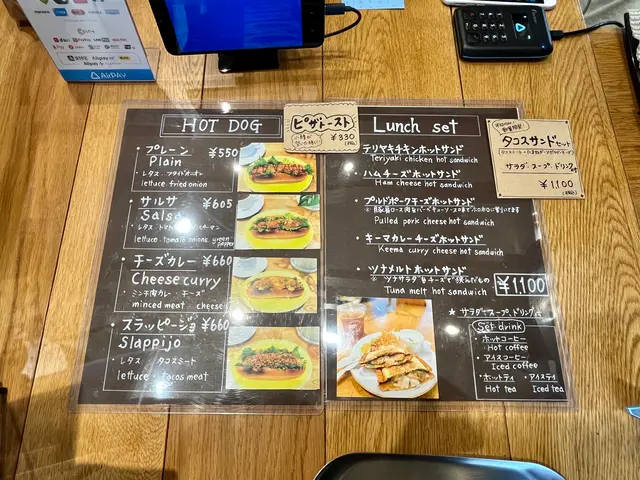 AirPAY
HOT DOG
・プレーン ¥550
Plain
・レタス・フライドオニオン
lettuce fried onion
・サルサ ¥605
Salsa
・レタス・トマト
lettuce・tomato・onions・green pepper
・チーズカレー ¥660
Cheese curry
・ミンチ肉カレー・チーズ
minced meat・cheese
・スラッピージョ ¥660
Slappijo
・レタス タコスミート
lettuce・tacos meat
ピザトースト
¥330
Lunch set
・テリヤキチキンホットサンド
Teriyaki chicken hot sandwich
・ハムチーズホットサンド
Ham cheese hot sandwich
・プルドポークチーズホットサンド
Pulled pork cheese hot sandwich
・キーマカレーチーズホットサンド
Keema curry cheese hot sandwich
・ツナメルトホットサンド
※ツナサラダとチーズで挟んだもの
Tuna melt hot sandwich
¥1100
★サラダ・スープ、ドリンク付
Set drink
・ホットコーヒー
Hot coffee
・アイスコーヒー
Iced coffee
・ホットティ ・アイスティ
Hot tea Iced tea
タコスサンドセット
サラダ・スープ・ドリンク付
¥1,100